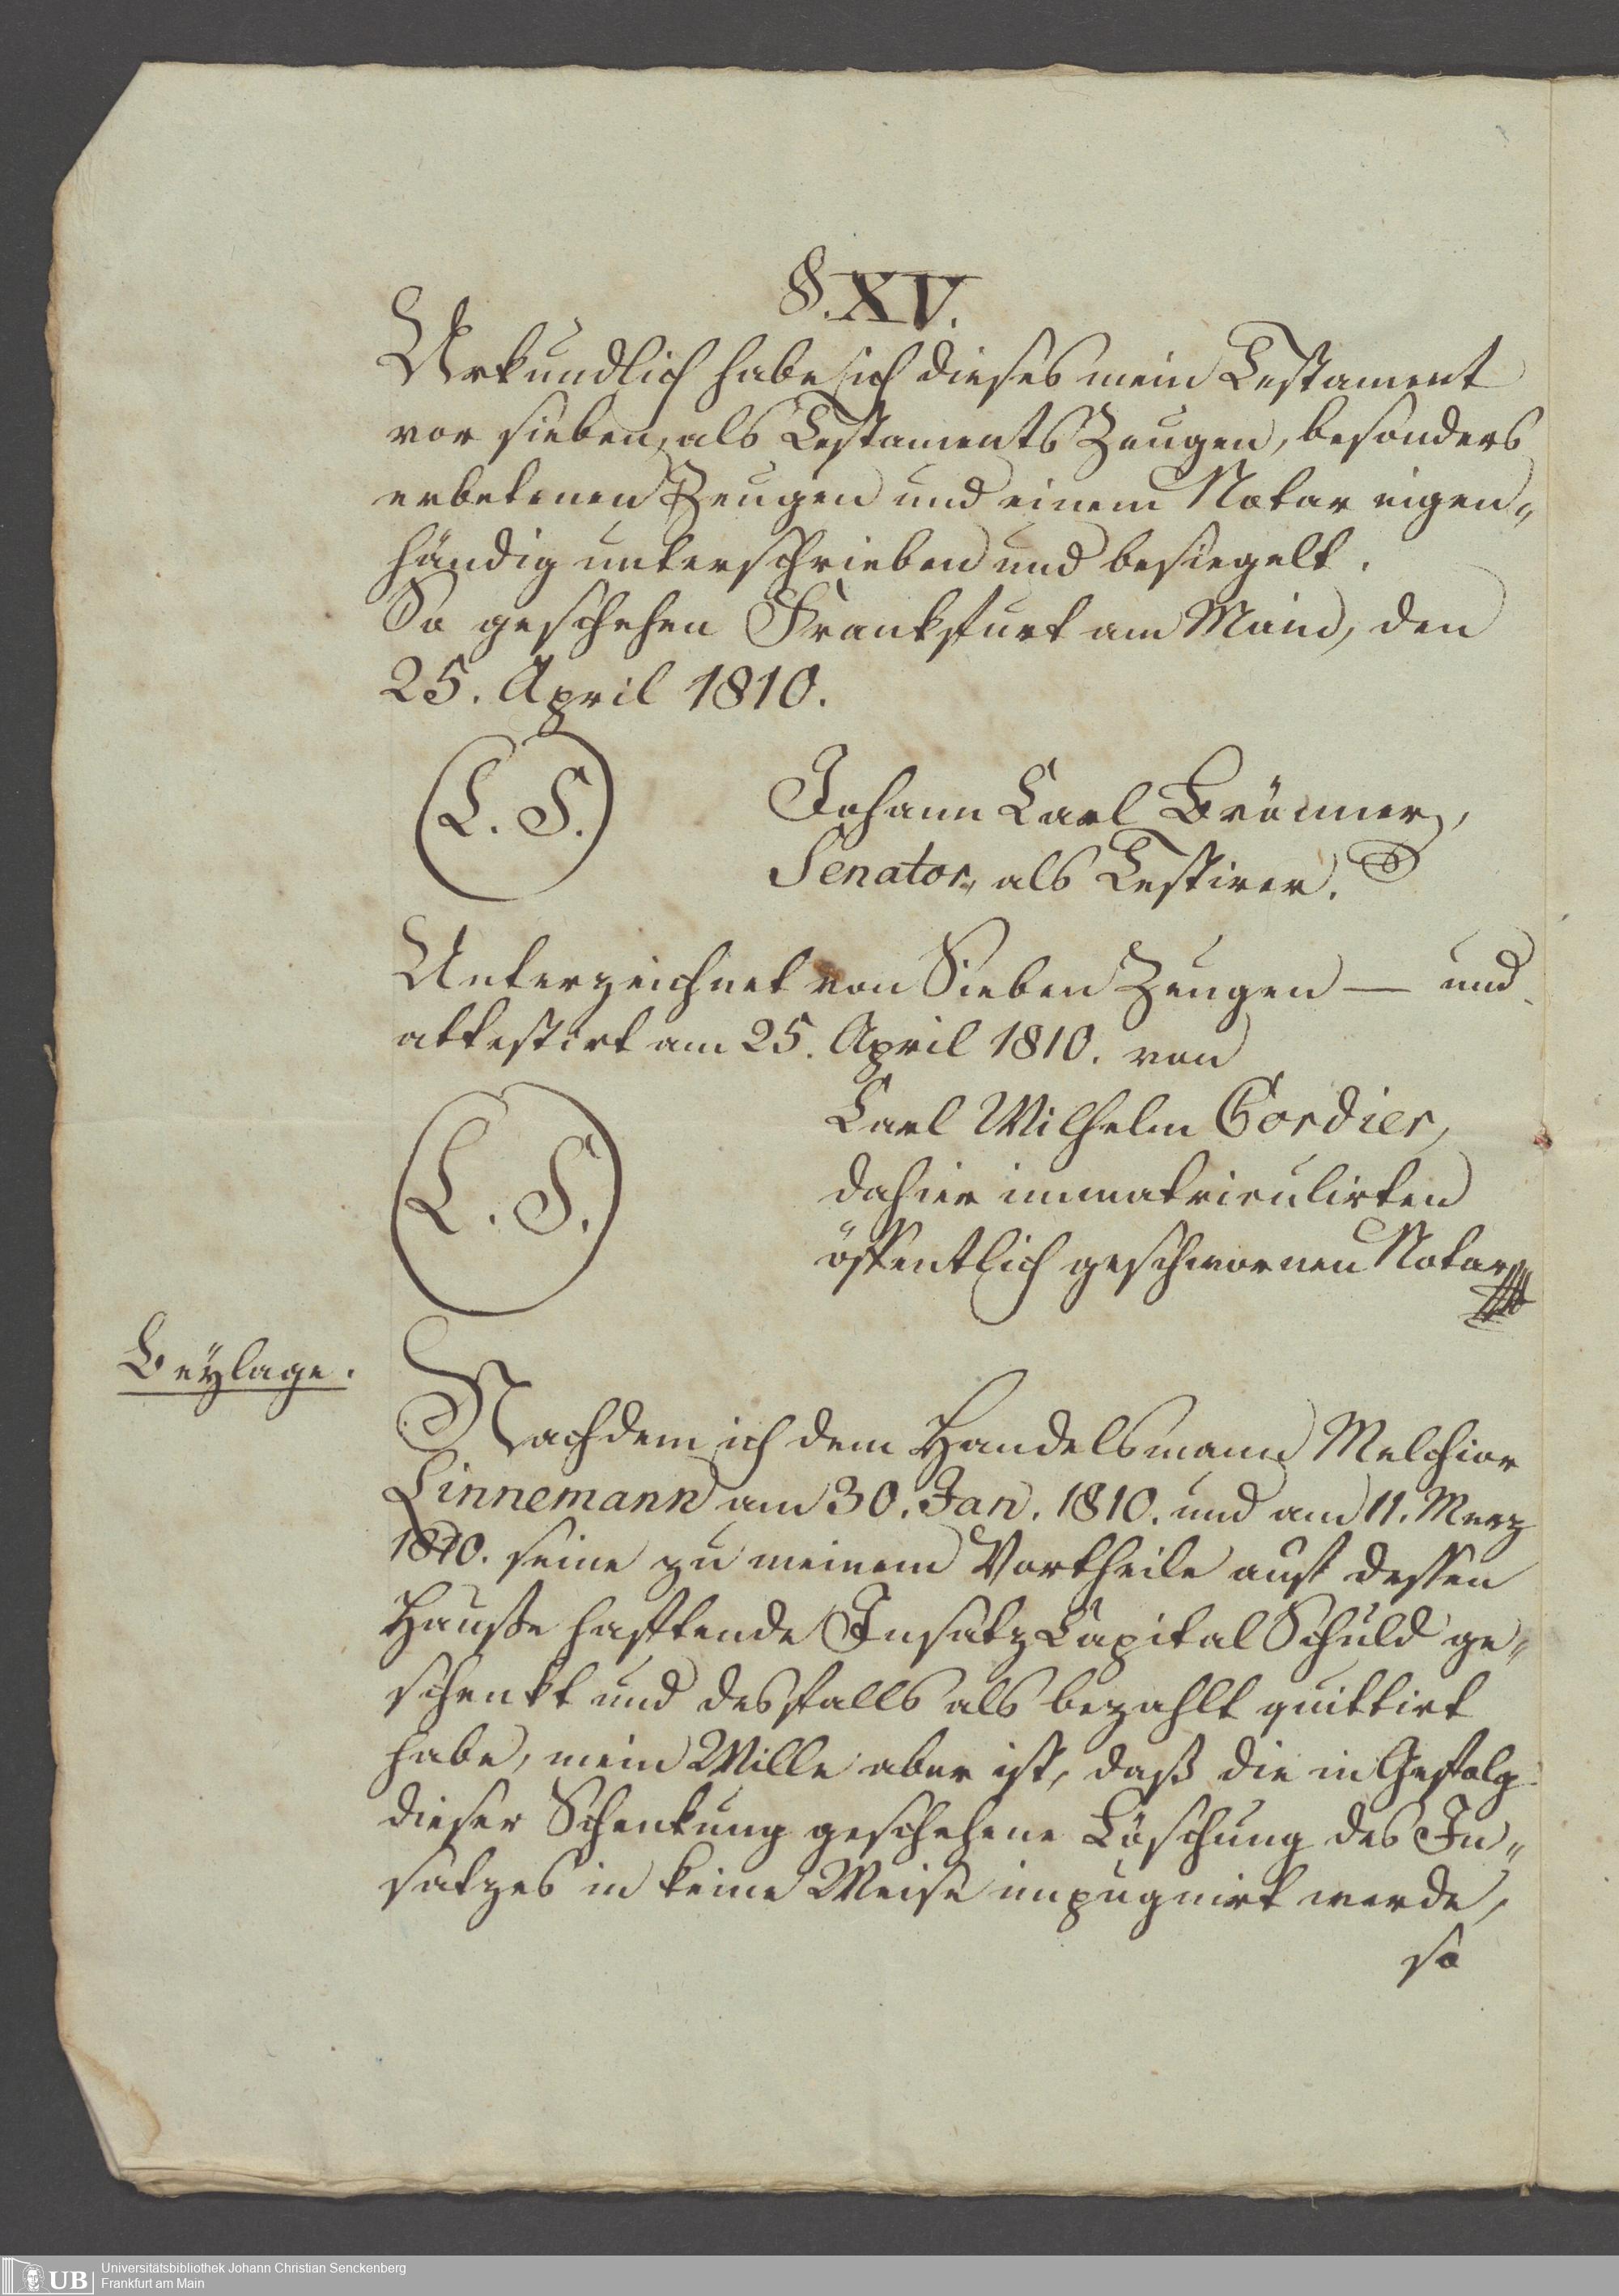 §. XV.
Urkundlich habe ich dieses mein Testament
vor sieben, als Testaments Zeugen, besonders
erbetenen Zeugen und einem Notar eigen„
händig unterschrieben und besiegelt.
So geschehen Frankfurt am Main, den
25. April 1810.
L. S.
Johann Carl Brönner,
Senator, als Testirer.
Unterzeichnet von Sieben Zeugen — und
attestirt am 25. April 1810. von
L. S.
Carl Wilhelm Cordier,
dahier immatriculirten
öffentlich geschwornen Notar
Beylage.
Nachdem ich dem Handelsmann Melchior
Linnemann am 30. Jan. 1810. und am 11. Merz
1810. seine zu meinem Vortheile auf dessen
Hauße haftende Insatz Capital Schuld ge„
schenkt und desfalls als bezahlt quittirt
habe, mein Wille aber ist, daß die in Gefolg
dieser Schenkung geschehene Löschung des In„
satzes in keine Weise impugnirt werde,
so
Universitätsbibliothek Johann Christian Senckenberg
Frankfurt am Main
UB